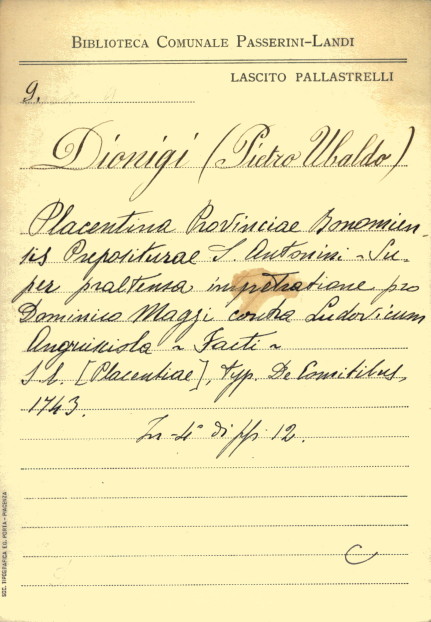 BIBLIOTECA COMUNALE PASSERINI-LANDI
LASCITO PALLASTRELLI
9.
Dionigi (Pietro Ubaldo)
Placentina Provinciae Bonomien-
sis Prepositurae S. Antonini - Su-
per praetensa impetratione pro
Dominico Maggi contra Ludovicum
Anguissiola - Facti -
S. l. [Placentiae], typ. De Comitibus,
1743.
In-4° di pp 12.
C
SOC. TIPOGRAFICA F.G. PORTA - PIACENZA